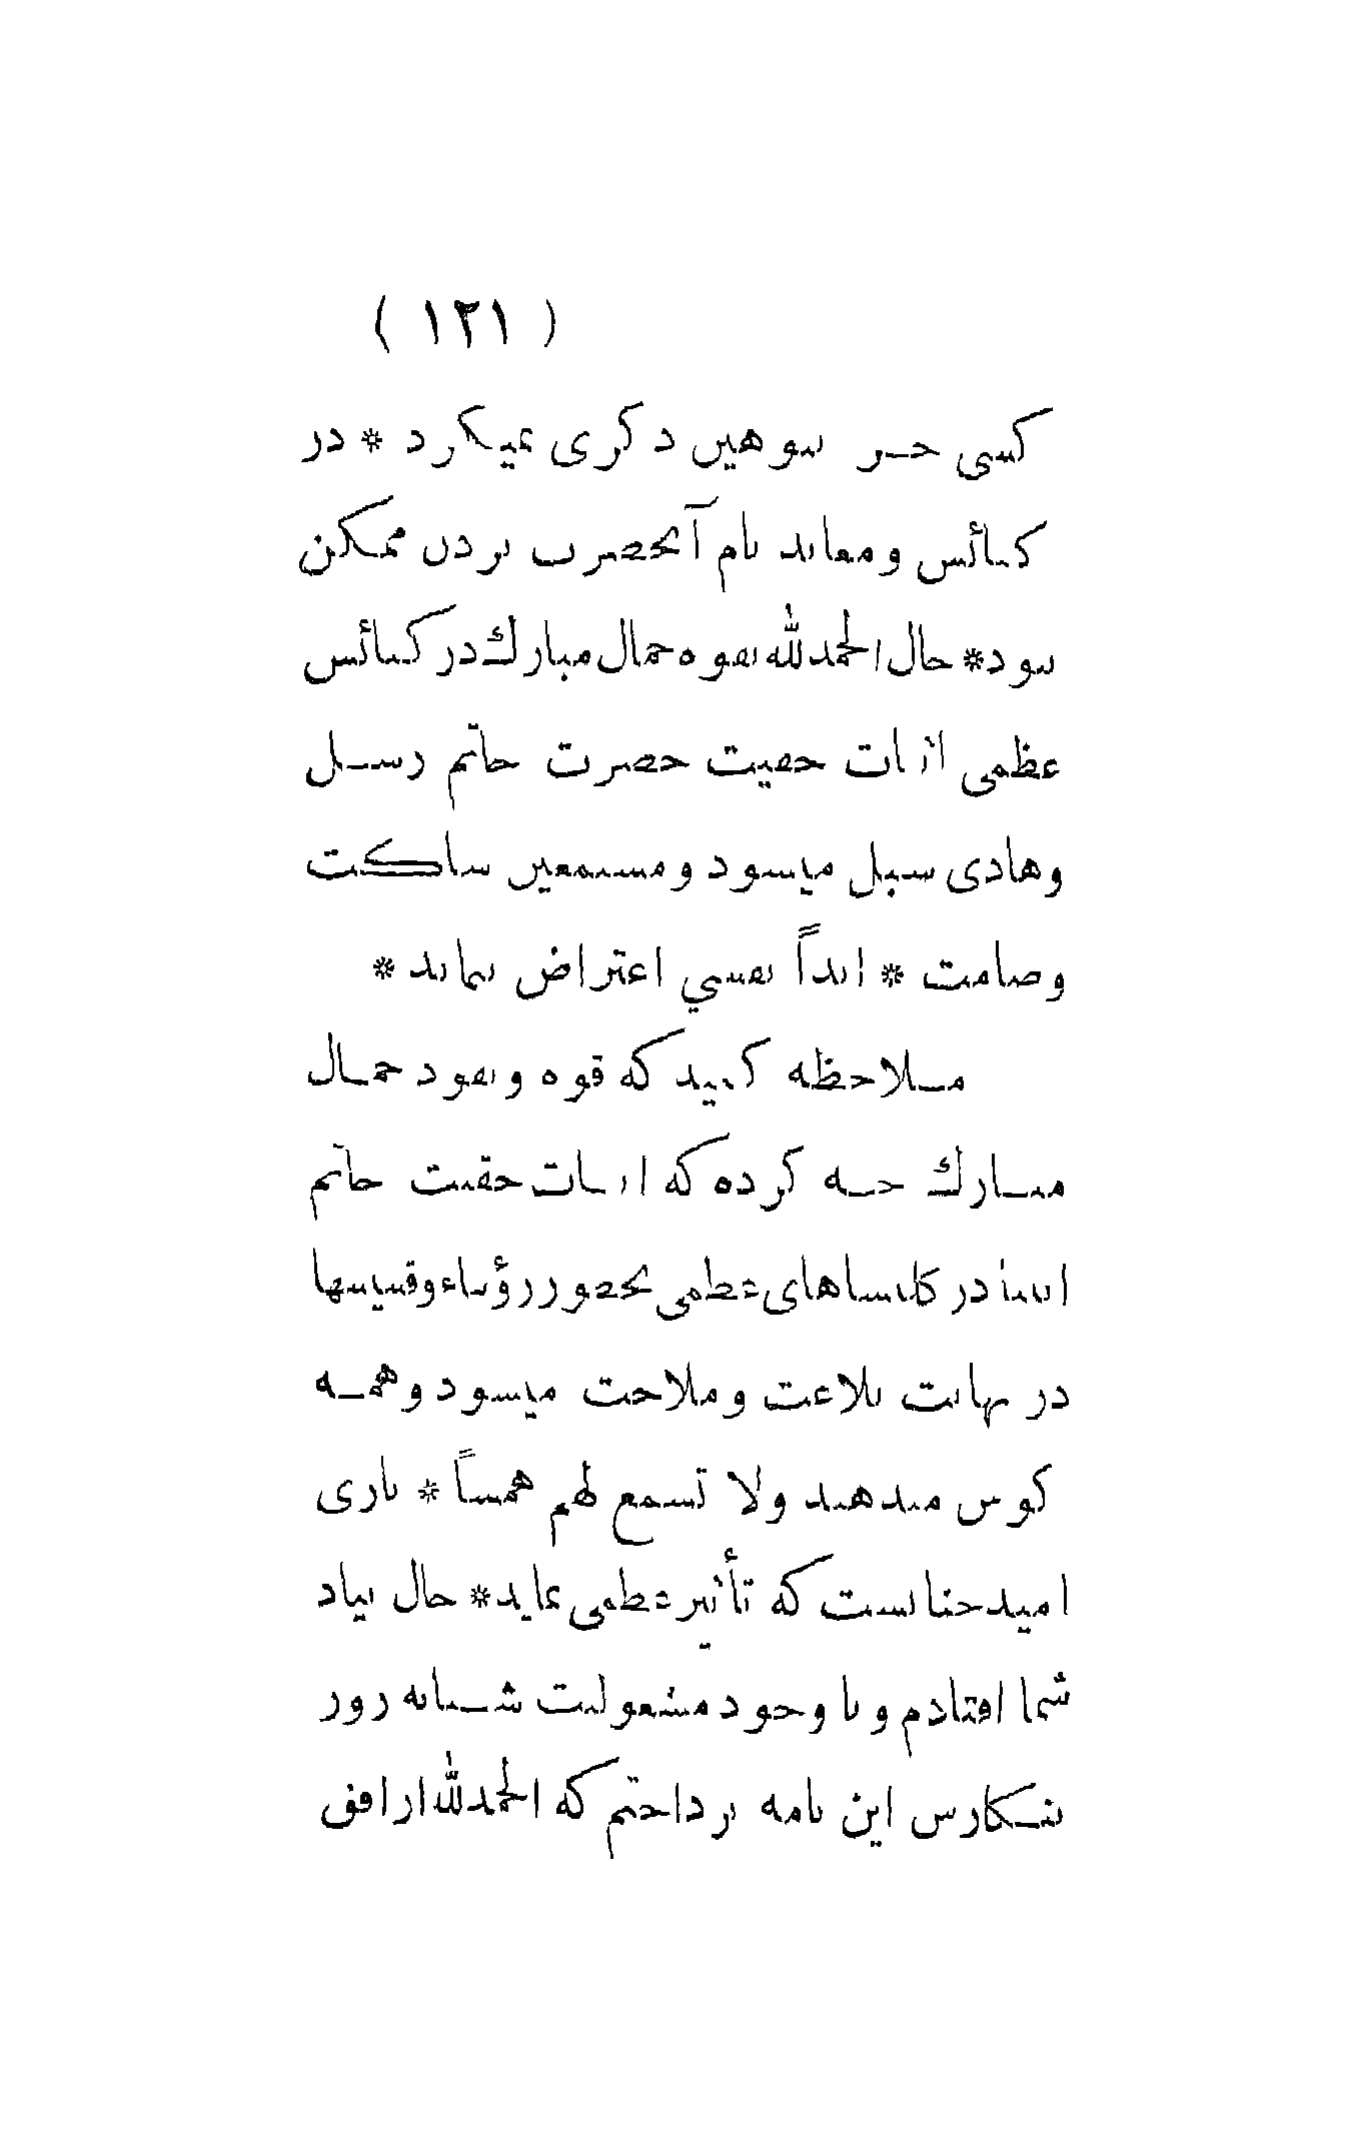 ( ١٢١ )
كسی جــز بتوهین ذكری نمیـكرد * در
كنائس ومعابد نام آنحضرت بردن ممـكن
نبود * حال الحمدلله بقوه جمال مبارك در كنائس
عظمی اثبات حقیت حضرت خاتم رســل
وهادی سبل میشود ومستمعین ساكت
وصامت * ابداً نفسي اعتراض ننماید *
مــلاحظه كنید كه قوه ونفوذ جمــال
مبــارك چــه كرده كه اثبــات حقیت خاتم
انبیا در كلیساهای عظمی بحضور رؤساء وقسیسها
در نهایت بلاغت وملاحت میشود وهمــه
كوش میدهند ولا تسمع لهم همساً * باری
امید چنانست كه تأثیر عظمی نماید * حال بیاد
شما افتادم وبا وجود مشغولیت شــبانه روز
بنــكارش این نامه پرداختم كه الحمدلله از افق